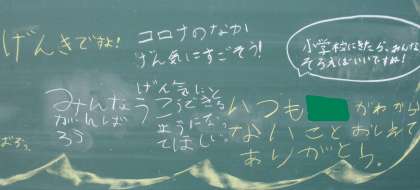 げんきですよ!
コロナのなか
げん気にすごそう!
小学校にきたら、みんな
そろえばいいですね!
みんな
がんば
ろう
げん気に
うごできる
ようになっ
てほしい。
いつも
がわから
ないことおしえて
ありがとう。